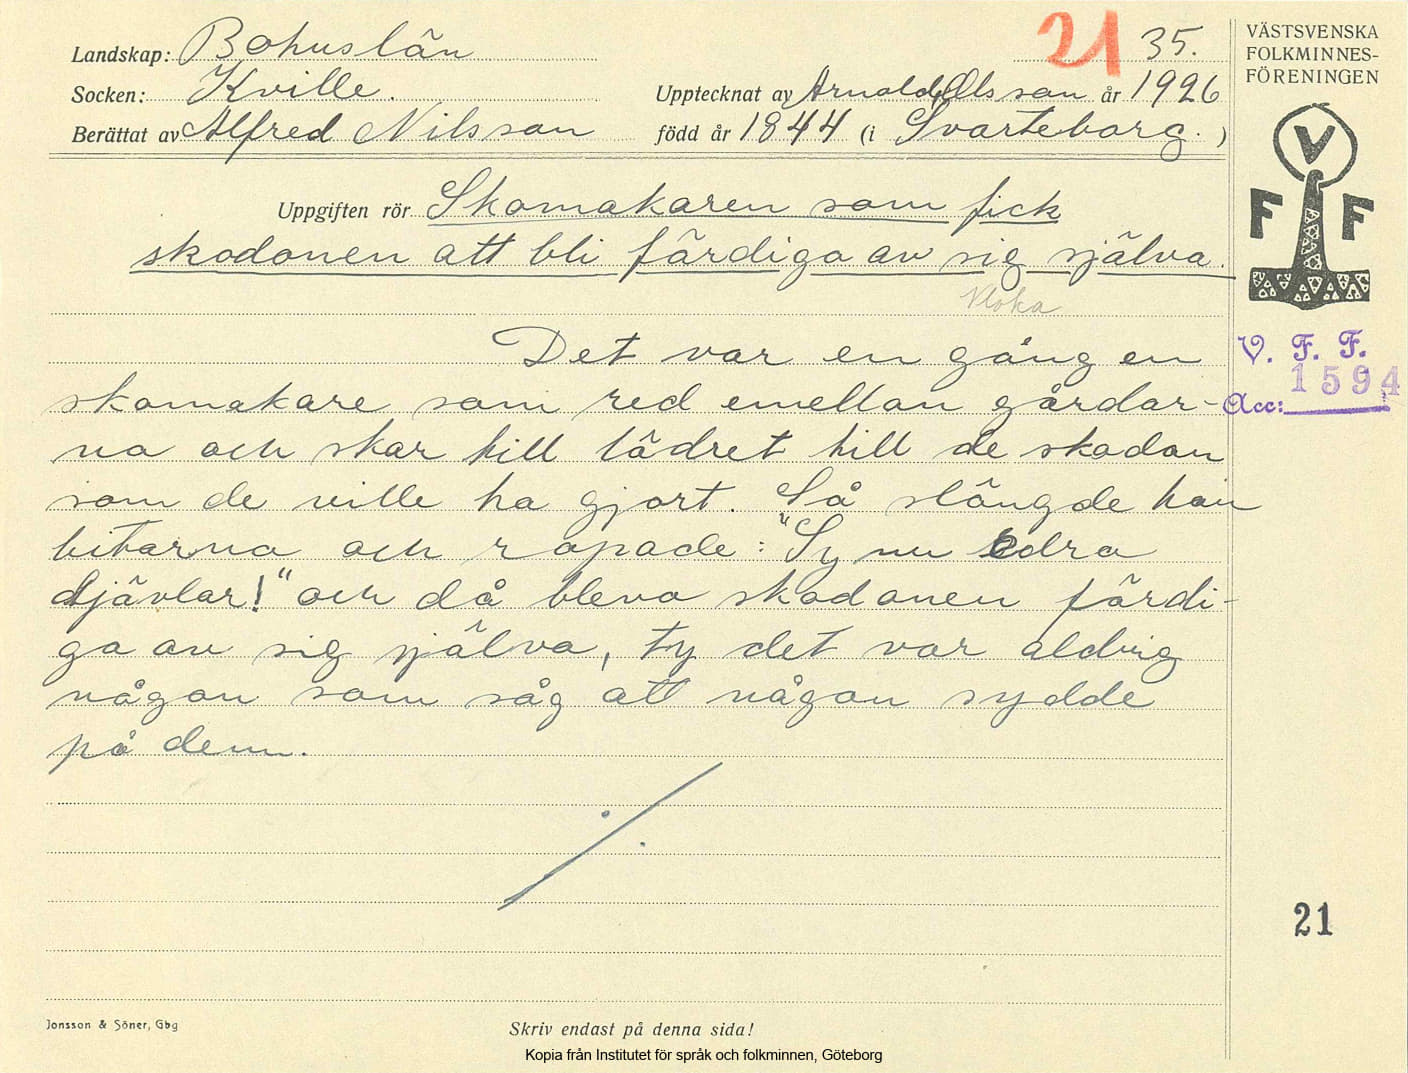 21 35.
Landskap: Bohuslän
Socken: Kville.
Upptecknat av Arnold Olsson år 1926
Berättat av Alfred Nilsson född år 1844 (i Svarteborg. )
Uppgiften rör Skomakaren som fick
skodonen att bli färdiga av sig själva.
Kloka
Det var en gång en
skomakare som red emellan gårdar-
na och skar till lädret till de skodon
som de ville ha gjort. Så slängde han
bitarna och ropade: "Sy nu edra
djävlar!" och då bleva skodonen färdi-
ga av sig själva, ty det var aldrig
någon som såg att någon sydde
på dem.
VÄSTSVENSKA
FOLKMINNES-
FÖRENINGEN
V
F F
V. F. F.
1594
Acc:
21
Jonsson & Söner, Gbg
Skriv endast på denna sida!
Kopia från Institutet för språk och folkminnen, Göteborg